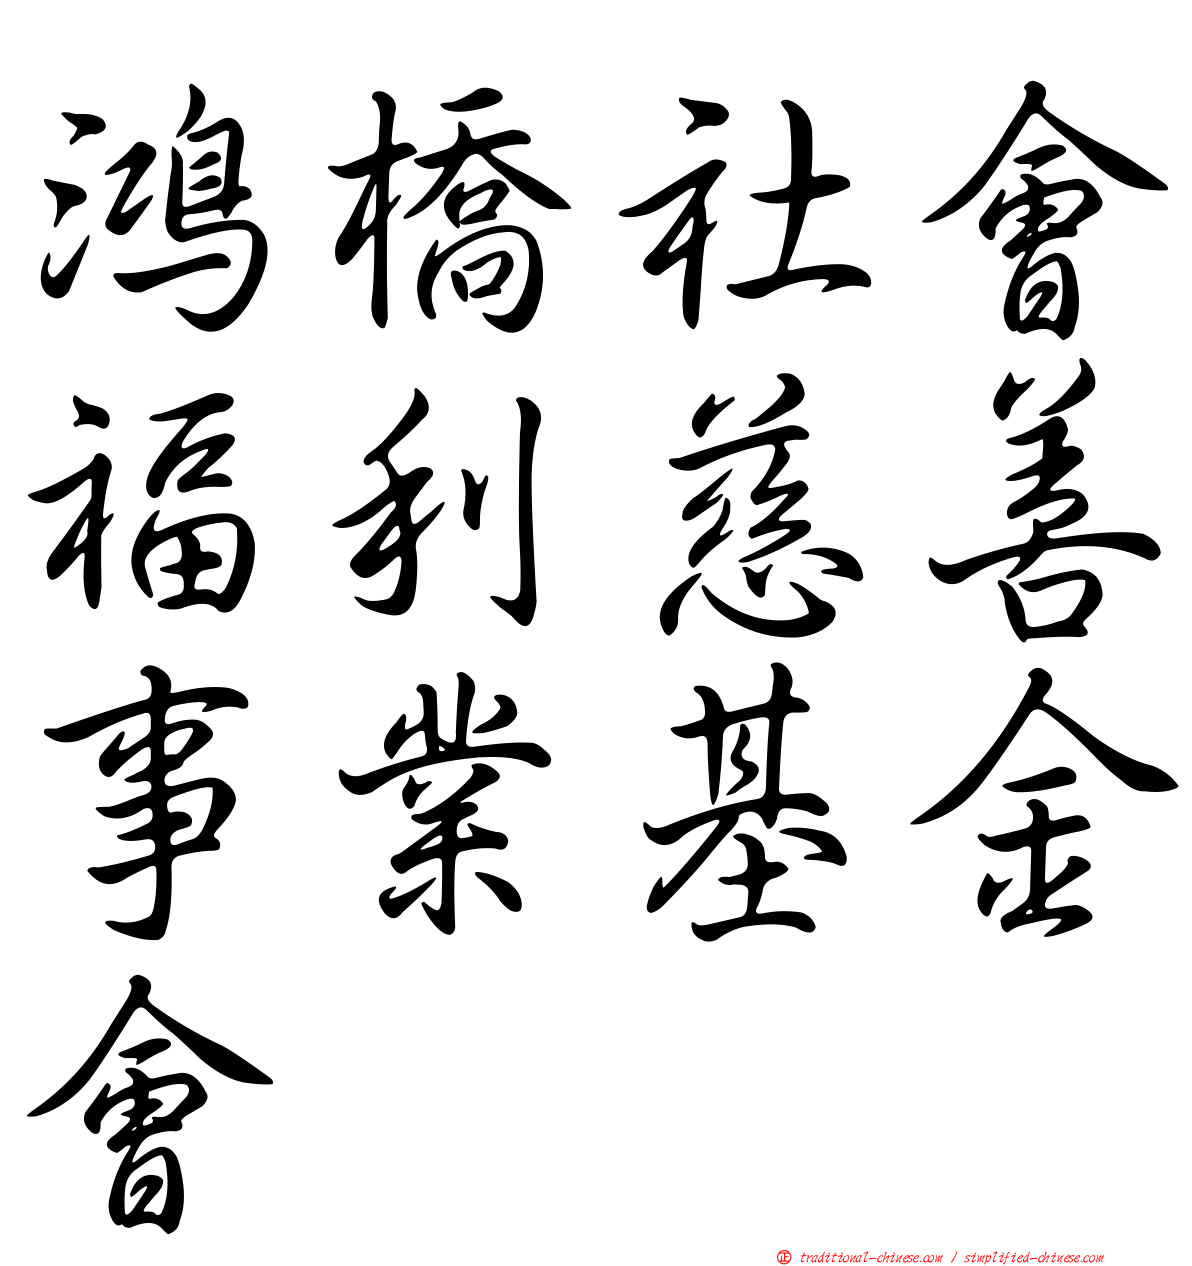 鴻橋社會
福利慈善
事業基金
會
㊣ traditional-chinese.com / simplified-chinese.com